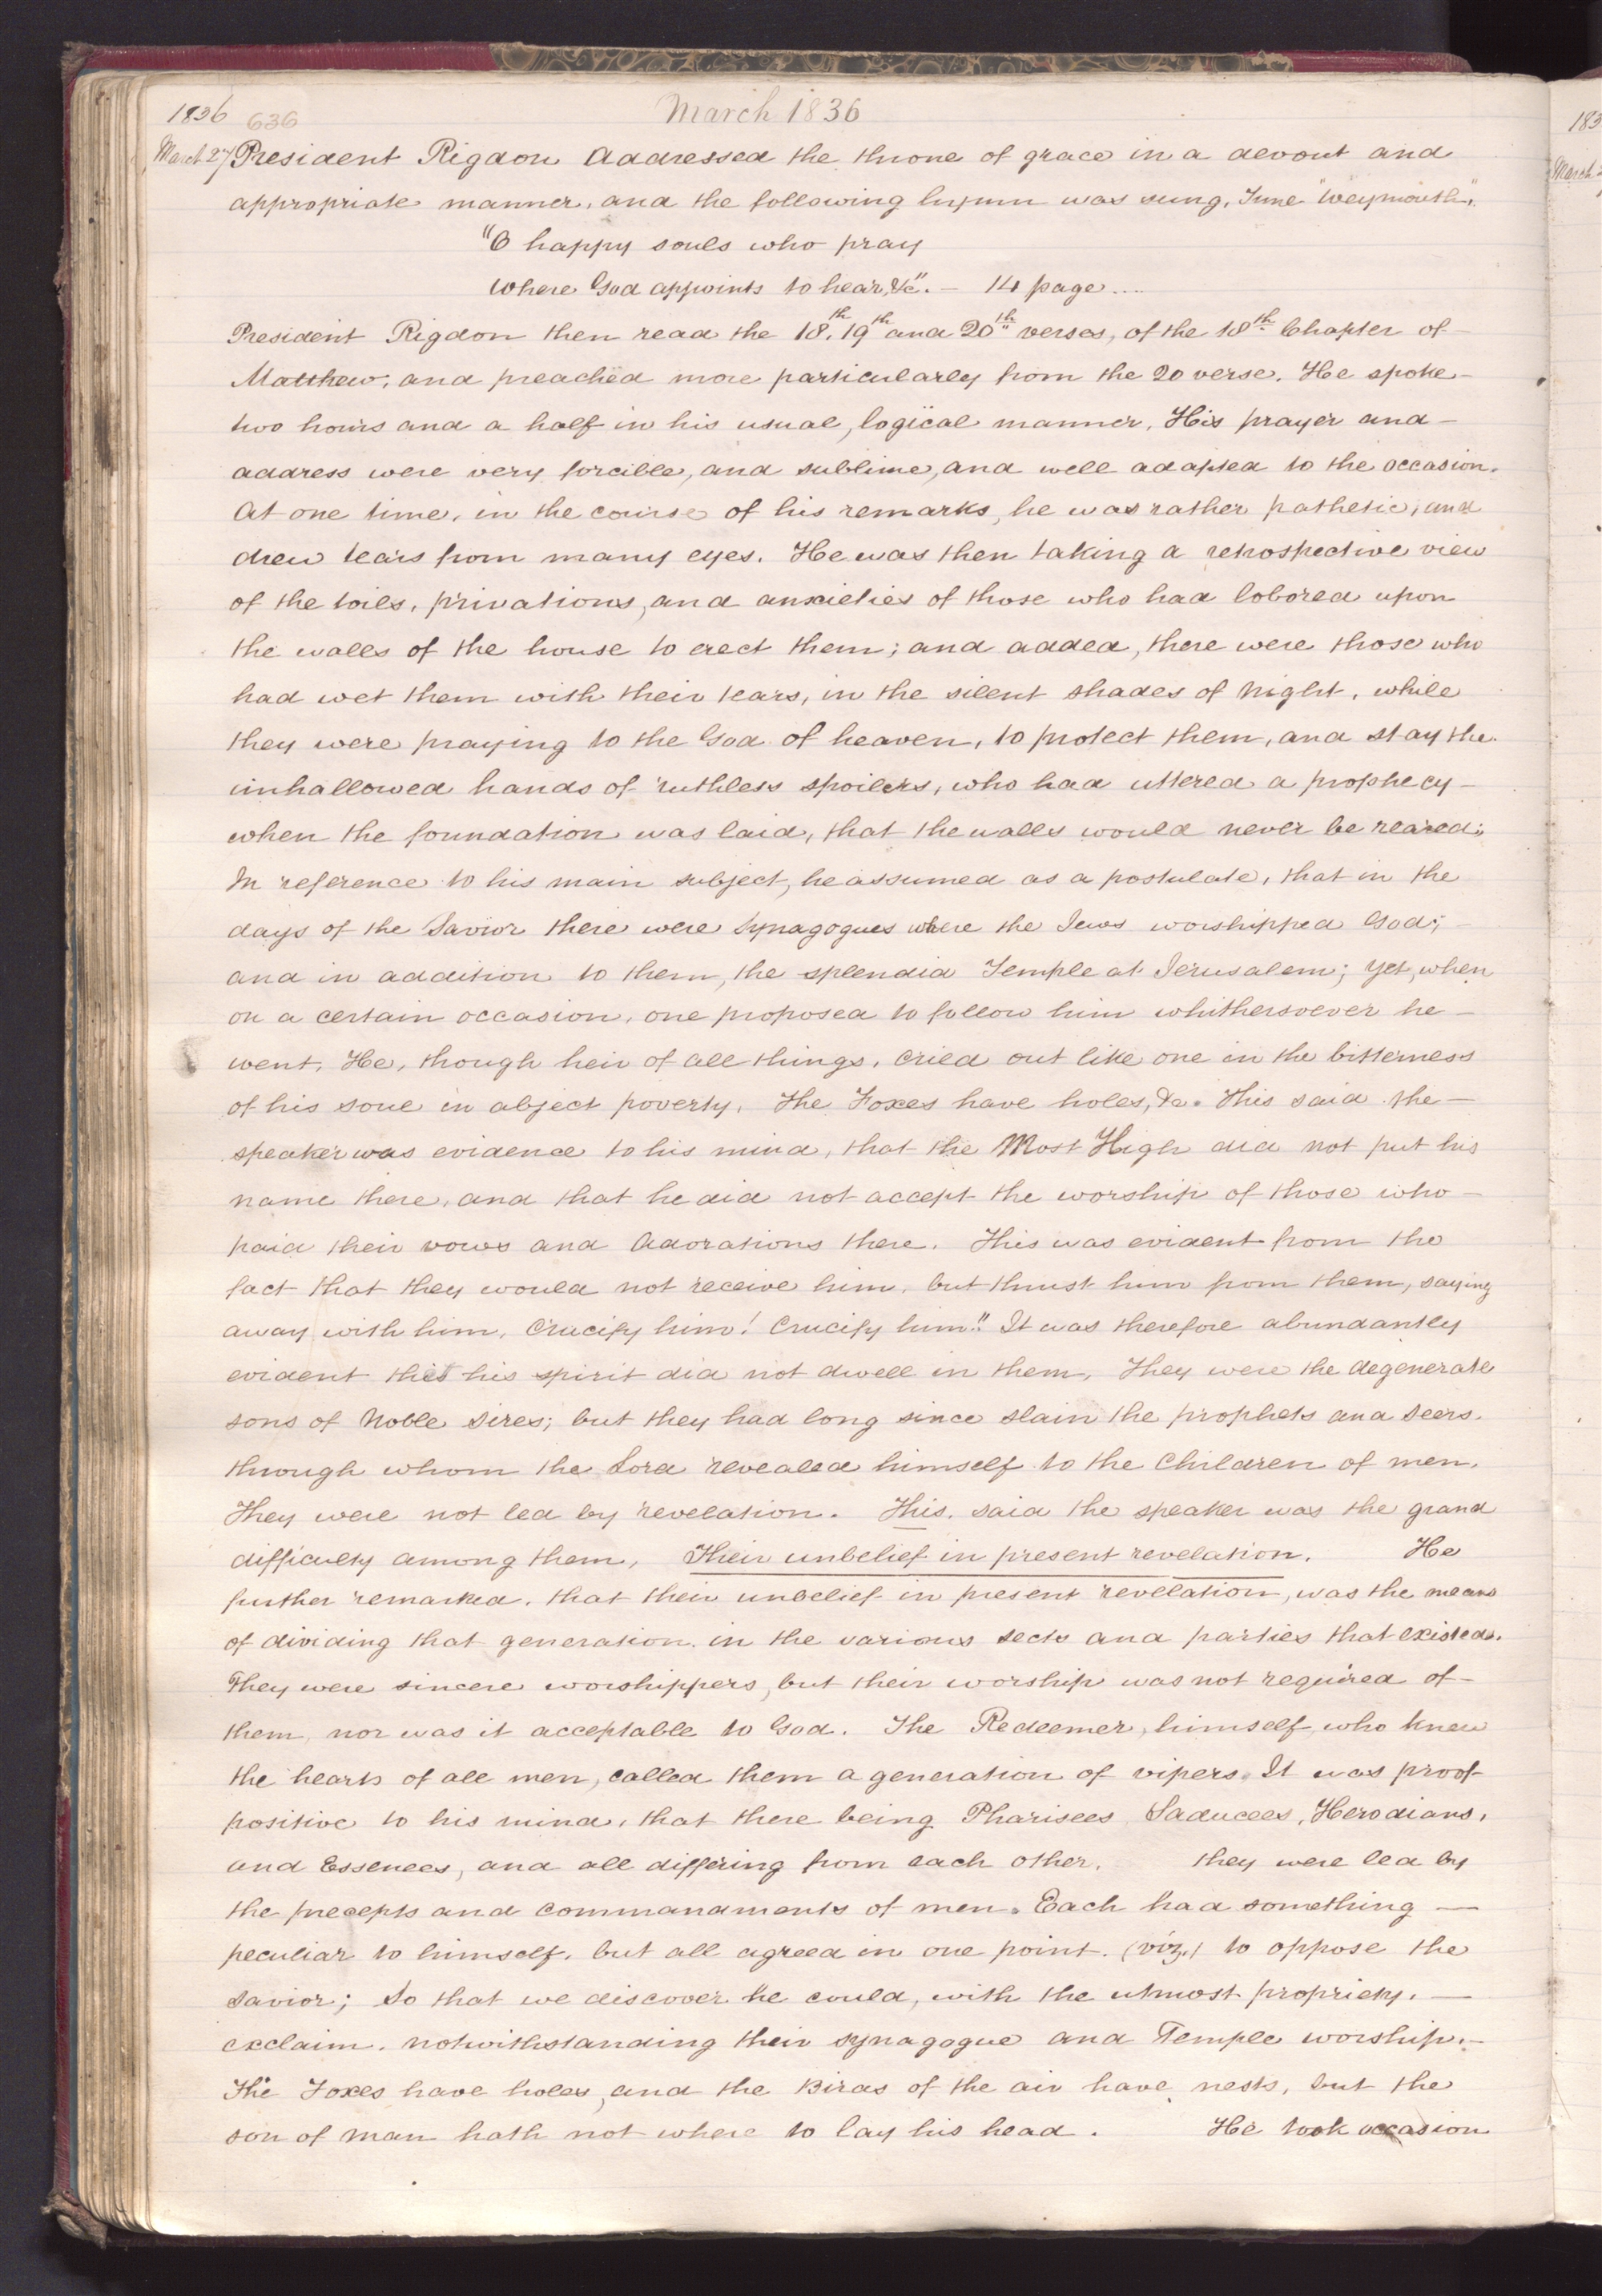 1836 636 March 1836
March 27 President Rigdon Addressed the throne of grace in a devout and
appropriate manner, and the following hymn was sung, Tune "Weymouth".
"O happy souls who pray
Where God appoints to hear, &c". — 14 page....
President Rigdon then read the 18th, 19th and 20th verses, of the 18th Chapter of
Matthew, and preached more particularly from the 20 verse. He spoke
two hours and a half in his usual, logical manner. His prayer and
address were very forcible, and sublime, and well adapted to the occasion.
At one time, in the course of his remarks, he was rather pathetic, and
drew tears from many eyes. He was then taking a retrospective view
of the toils, privations, and anxieties of those who had lobored upon
the walls of the house to erect them; and added, there were those who
had wet them with their tears, in the silent shades of Night, while
they were praying to the God of heaven, to protect them, and stay the
unhallowed hands of ruthless spoilers, who had uttered a prophecy
when the foundation was laid, that the walls would never be reared;
In reference to his main subject, he assumed as a postulate, that in the
days of the Savior there were Synagogues where the Jews worshipped God;
and in addition to them, the splendid Temple at Jerusalem; yet, when
on a certain occasion, one proposed to follow him whithersoever he
went, He, though heir of all things, cried out like one in the bitterness
of his soul in abject poverty, The Foxes have holes, &c. This said the
speaker was evidence to his mind, that the Most High did not put his
name there, and that he did not accept the worship of those who
paid their vows and Adorations there. This was evident from the
fact that they would not receive him, but thrust him from them, saying
away with him, Crucify him! Crucify him!! It was therefore abundantly
evident that his spirit did not dwell in them, They were the degenerate
sons of Noble Sires; but they had long since slain the prophets and Seers.
through whom the Lord revealed himself to the Children of men.
They were not led by revelation. This, said the speaker was the grand
difficulty among them, Their unbelief in present revelation. He
further remarked, that their unbelief in present revelation, was the means
of dividing that generation, in the various sects and parties that existed.
They were sincere worshippers, but their worship was not required of
them, nor was it acceptable to God. The Redeemer, himself, who knew
the hearts of all men, called them a generation of vipers. It was proof
positive to his mind, that there being Pharisees Saducees, Herodians,
and Essenees, and all differing from each other, they were led by
the precepts and commandments of men. Each had something —
peculiar to himself, but all agreed in one point. (viz.) to oppose the
Savior; So that we discover he could, with the utmost propriety, —
exclaim, notwithstanding their synagogue and Temple worship.—
The Foxes have holes, and the Birds of the air have nests, but the
son of man hath not where to lay his head. He took occasion
183
March 2